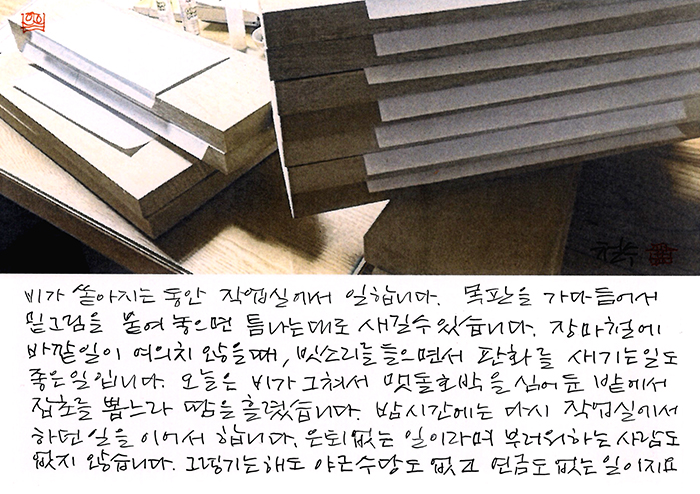 철수
비가 쏟아지는 동안 작업실에서 일합니다. 목판을 가다듬어서
밑그림을 붙여 놓으면 틈나는대로 새길수 있습니다. 장마철에
바깥일이 여의치 않을때, 빗소리를 들으면서 판화를 새기는일도
좋은일입니다. 오늘은 비가 그쳐서 맷돌호박을 심어둔 밭에서
잡초를 뽑느라 땀을 흘렸습니다. 밤시간에는 다시 작업실에서
하던일을 이어서 합니다. 은퇴없는 일이라며 부러워하는 사람도
없지 않습니다. 그렇기는해도 야근수당도 없고 연금도 없는 일이지요